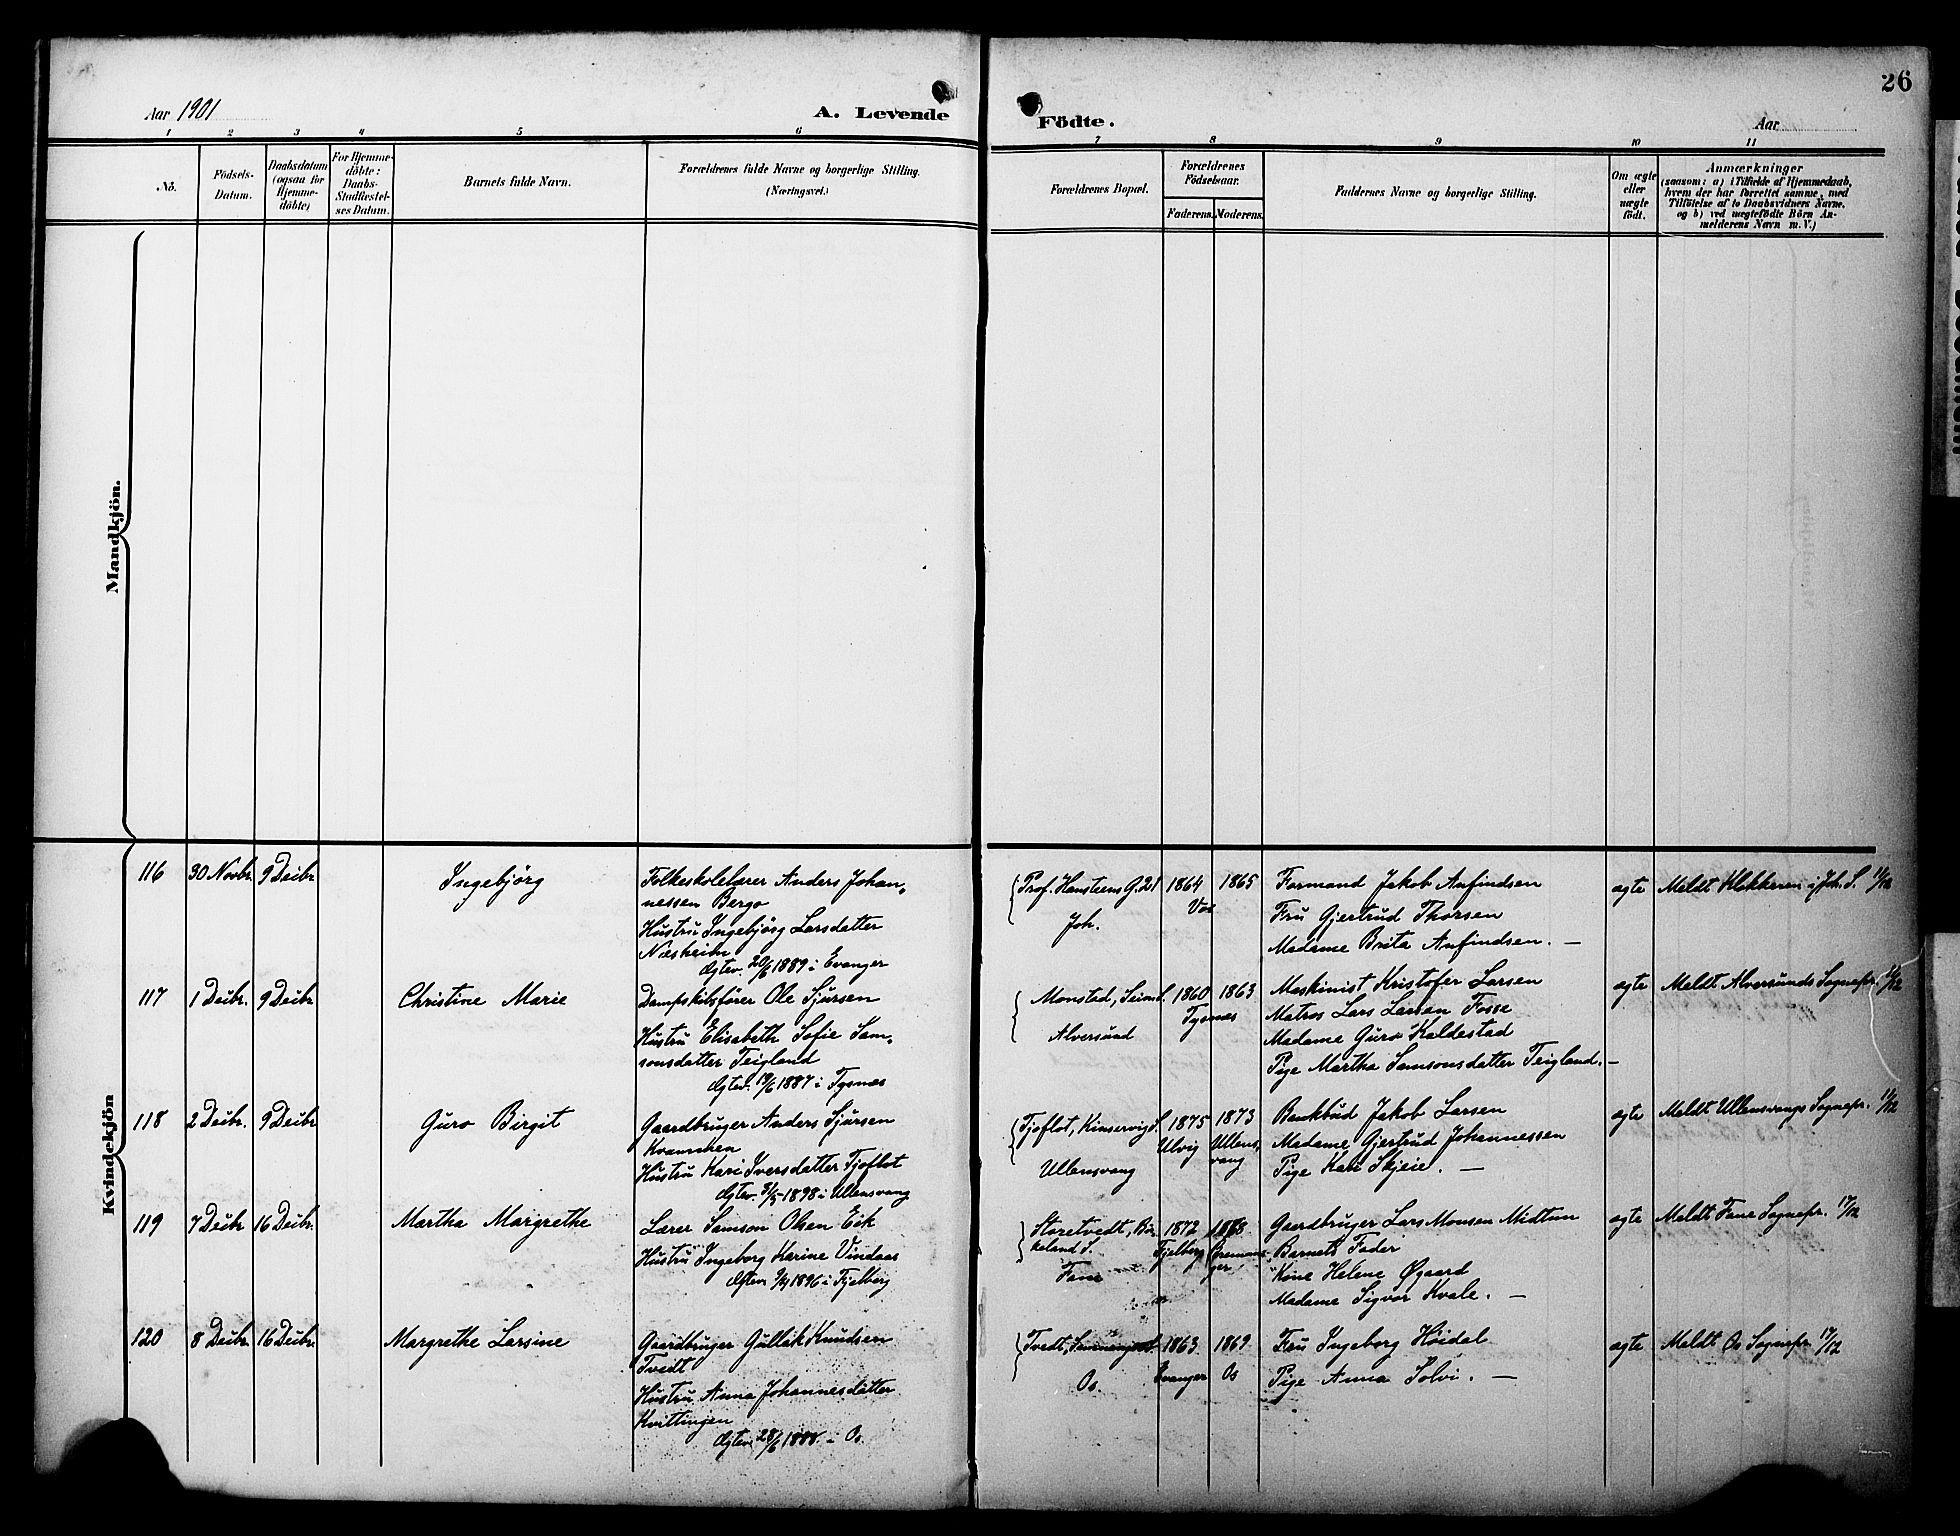 26
Aar 1901
A. Levende
Födte.
Aar
1 2 3 4 5 6 7 8 9 10 11
No.
Födsels-
Datum.
Daabsdatum
(ogsaa for
Hjemme-
döbte)
For Hjemme-
döbte:
Daabs-
Stadfæstel-
ses Datum.
Barnets fulde Navn.
Forældrenes fulde Navne og borgerlige Stilling.
(Næringsvei.)
Forældrenes Bopæl.
Forældrenes
Födselsaar.
Faderens. Moderens.
Faddernes Navne og borgerlige Stilling.
Om ægte
eller
uægte
födt.
Anmærkninger
(saasom: a) i Tilfælde af Hjemmedaab,
hvem der har forrettet samme, med
Tilföielse af to Daabsvidners Navne,
og b) ved uægtefödte Börn An-
melderens Navn m. V.)
Mandkjön.
Kvindekjön
116
30 Novbr.
9 Decbr
Ingebjörg
Folkeskolelærer Anders Johan-
nessen Bergo
Hustru Ingebjörg Larsdatter
Næsheim
Ægtev. 20/6 1889 i Evanger
Prof. Hansteens G. 21
Joh.
1864
1865
Vos
Formand Jakob Anfindsen
Fru Gjertrud Thorsen
Madame Brita Anfindsen. —
ægte
Meldt Klokkeren i Joh. S. 11/12
117
1 Decbr.
9 Decbr
Christine Marie
Dampskibsförer Ole Sjursen
Hustru Elisabeth Sofie Sam-
sonsdatter Teigland
Ægtev. 19/6 1887 i Tysnæs
Monstad, Seim S.
Alversund
1860
1863
Tysnæs
Maskinist Kristofer Larsen
Matros Lars Larsen Fosse
Madame Guro Kaldestad
Pige Martha Samsonsdatter Teigland. —
ægte
Meldt Alversunds Sognepr. 11/12
118
2 Decbr.
9 Decbr
Guro Birgit
Gaardbruger Anders Sjursen
Kvammen
Hustru Kari Iversdatter Tjoflot
Ægtev. 31/5 1898 i Ullensvang
Tjoflot, Kinservig S.
Ullensvang
1875
Ulvig
1873
Ullens-
vang
Bankbud Jakob Larsen
Madame Gjertrud Johannessen
Pige Kari Skjeie. —
ægte
Meldt Ullensvangs Sognepr. 11/12
119
7 Decbr
16 Decbr.
Martha Margrethe
Lærer Samson Olsen Eik
Hustru Ingeborg Karine Vindaas
Ægtev. 9/4 1896 i Fjelberg
Storetvedt, Bir-
keland S.
Fane
1872
Fjelberg
1868
Gaardbruger Lars Monsen Midtun
Barnets Fader
Kone Helene Øgaard
Madame Sigvor Kvale. —
ægte
Meldt Fane Sognepr. 17/12
120
8 Decbr.
16 Decbr.
Margrethe Larsine
Gaardbruger Gullak Knudsen
Tvedt
Hustru Anna Johannesdatter
Kvittingen
Ægtev. 28/6 1888 - Os
Tvedt,
Os.
1863
Evanger
1869
Os
Fru Ingeborg Höidal
Pige Anna Solvi. —
ægte
Meldt Os Sognepr. 17/12